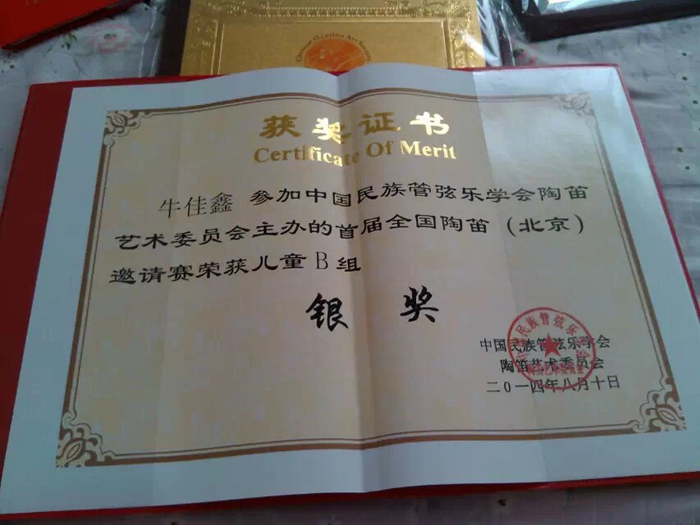 Chinese Ocarina Art Society
获奖证书
Certificate Of Merit
牛佳鑫 参加中国民族管弦乐学会陶笛
艺术委员会主办的首届全国陶笛（北京）
邀请赛荣获儿童B组
银 奖
中国民族管弦乐学会
陶笛艺术委员会
二〇一四年八月十日